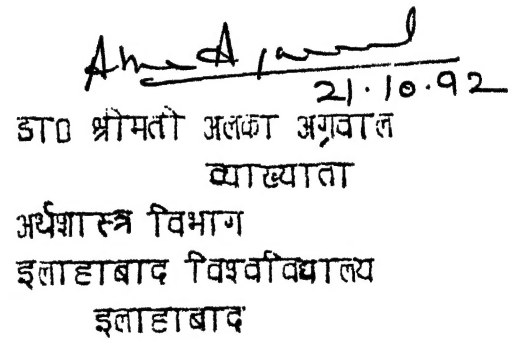 21.10.92
डा0 श्रीमती अलका अग्रवाल
व्याख्याता
अर्थशास्त्र विभाग
इलाहाबाद विश्वविद्यालय
इलाहाबाद